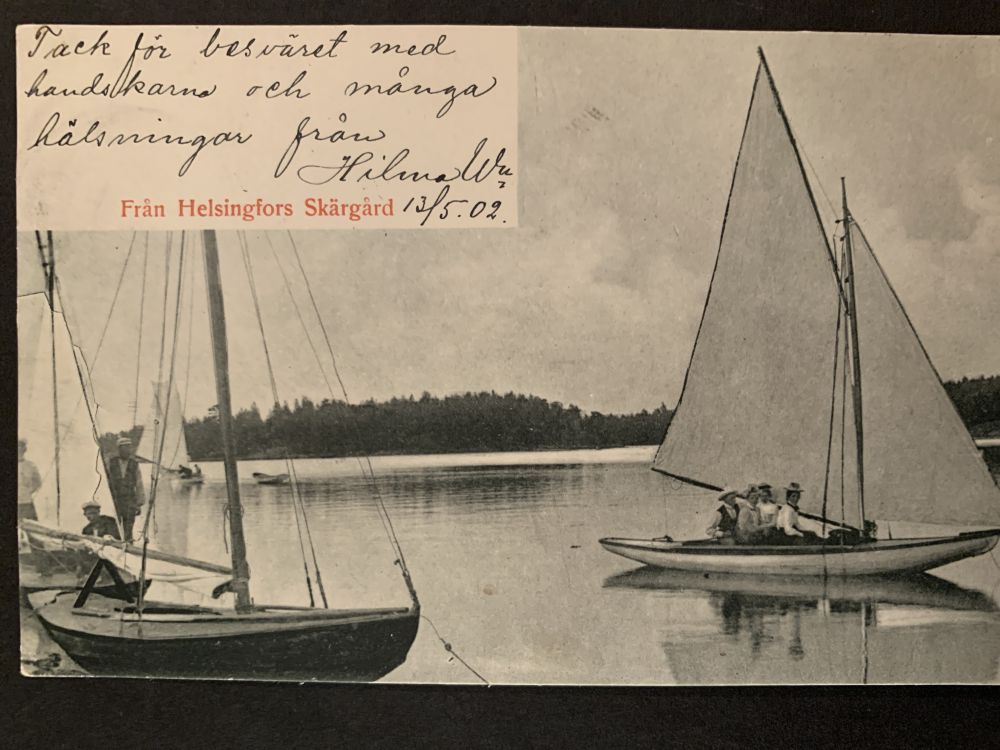 Tack för besväret med
handskarna och många
hälsningar från
Hilma Wn
Från Helsingfors Skärgård 13/5.02.